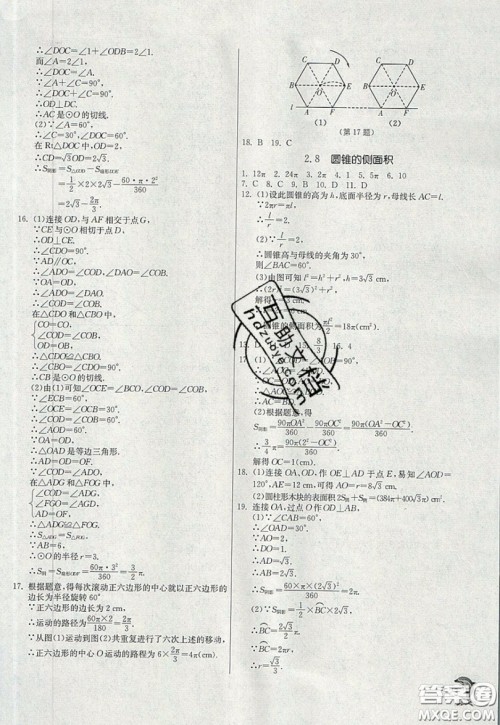 ∴∠DOC=∠1+∠ODB=2∠1.
而∠A=2∠1,
∴∠DOC=∠A.
∵∠A+∠C=90°,
∴∠DOC+∠C=90°.
∴OD⊥DC.
∴AC是⊙O的切线.
(2)∵∠A=60°,
∴∠C=30°,∠DOC=60°.
在Rt△DOC中,OD=2,
∴CD=√3OD=2√3.
∴S阴影=S△COD-S扇形DOE
=1/2×2×2√3-60·π·2²/360
=2√3-2π/3.
16. (1)连接OD,与AF相交于点G,
∵CE与⊙O相切于点D,
∴OD⊥CE.
∴∠CDO=90°.
∵AD∥OC,
∴∠ADO=∠COD,∠DAO=∠COB.
∵OA=OD,
∴∠ADO=∠DAO.
∴∠COD=∠COB.
在△CDO和△CBO中
CO=CO,
∠COD=∠COB,
OD=OB,
∴△CDO≌△CBO.
∴∠CBO=∠CDO=90°.
∴CB是⊙O的切线.
(2)由(1)可知∠OCE=∠BCO,∠COD=∠COB,
∵∠ECB=60°,
∴∠OCE=1/2∠ECB=30°.
∴∠COD=∠COB=60°.
∴∠AOD=60°.
∵OA=OD,
∴△OAD是等边三角形.
∴AD=OD=OF.
∵∠GOF=∠ADO,
在△ADG和△FOG中
∠GOF=∠ADG,
∠FGO=∠AGD,
AD=OF,
∴△ADG≌△FOG.
∴S△ADG=S△FOG.
∵AB=6,
∴⊙O的半径r=3.
∴S阴影=S扇形ODF=60π·3²/360=3/2π.
17. 根据题意,得每次滚动正六边形的中心就以正六边形的
边长为半径旋转60°
∵正六边形的边长为2 cm,
∴运动的路径为60π×2/180=2π/3.
∵从图(1)运动到图(2)共重复进行了六次上述的移动,
∴正六边形的中心O运动的路程为6×2π/3=4π(cm).
C D E B O A F l
C D B E A F
(1) (2)
(第17题)
18. B 19. C
2.8 圆锥的侧面积
1. 12π 2. 24π 3. 2 4. 15π 5. 6π 6. 10
7. C 8. D 9. B 10. D 11. C
12. (1)设此圆锥的高为h,底面半径为r,母线长AC=l.
∵2πr=πl,
∴l/r=2.
(2)∵l/r=2,
∴圆锥高与母线的夹角为30°.
则∠BAC=60°.
(3)由图可知l²=h²+r²,h=3√3 cm,
∴(2r)²=(3√3)²+r²
解得
∴圆锥的侧面积为πl²/2=18π(cm²).
13. D 8/3 16. 4
∠BOD.
(2)根据题意,得
S阴影=90πOA²/360-90πOC²/360=90π(OA²-OC²)/360
∴3/4π=90π(2²-OC²)/360.
解得OC=1(cm).
18. (1)连接OA,OD,作OE⊥AD于点E,易知∠AOD=
120°,AE=12 cm,可得AO=r=8√3 cm.
(2)圆柱形木块的表面积2S圆+S侧=(384π+400√3π)cm².
19. 连接OA,过点O作OD⊥AB,
(1)∵∠CAB=60°,
∴∠OAD=30°.
∴OD=1/2OA=1.
∴AD=√3.
∴AB=2√3.
∴S扇形=60π×(2√3)²/360=2π.
(2)∵BC=60π×2√3/180.
∴BC=2√3/3π.
∴2πr=2√3/3π.
∴r=√3/3.
互助文档
hdzuoye.com
答案圈
MXQE.COM